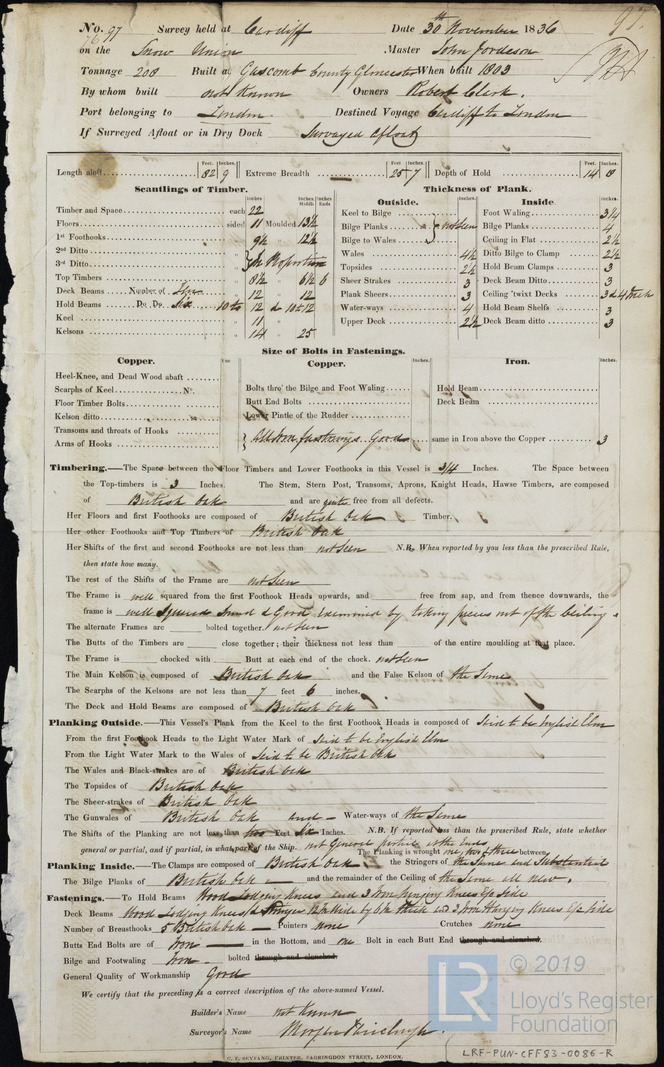 No. 97 Survey held at Cardiff Date 30th November 1836 97
on the Snow Union Master John Jordeson
Tonnage 208 Built at Gascomb County Glocester When built 1803
By whom built not Known Owners Robert Clark.
Port belonging to London Destined Voyage Cardiff to London
If Surveyed Afloat or in Dry Dock Surveyed Afloat
Length aloft 82 9 Extreme Breadth 25 7 Depth of Hold 14 8
Scantlings of Timber. Thickness of Plank.
Outside. Inside
Timber and Space each 22 Keel to Bilge not seen Foot Waling 3 1/4
Floors sided 11 Moulded 13 1/2 Bilge Planks Bilge Planks 4
1st Foothooks 9 1/2 12 1/2 Bilge to Wales Ceiling in Flat 2 1/2
2nd Ditto Wales 4 1/2 Ditto Bilge to Clamp 2 1/2
3rd Ditto In Proportion Topsides 2 1/2 Hold Beam Clamps 3
Top Timbers 8 1/2 6 1/2 6 Sheer Strakes 3 Deck Beam Ditto 3
Deck Beams Number of 12 12 Plank Sheers 3 Ceiling 'twixt Decks 3 & 4 thick
Hold Beams Do. Do. Six 10 to 12 & 10 to 12 Water-ways 4 Hold Beam Shelfs 3
Keel 11 Upper Deck 2 1/2 Deck Beam ditto 3
Kelsons 14 25
Size of Bolts in Fastenings.
Copper. Copper. Iron.
Heel-Knee, and Dead Wood abaft
Scarphs of Keel No. Bolts thro' the Bilge and Foot Waling Hold Beam
Floor Timber Bolts Butt End Bolts Deck Beam
Kelson ditto Lower Pintle of the Rudder
Transoms and throats of Hooks
Arms of Hooks All Iron fastenings Good same in Iron above the Copper 3
Timbering.—The Space between the Floor Timbers and Lower Foothooks in this Vessel is 3/4 Inches. The Space between
the Top-timbers is 3 Inches. The Stem, Stern Post, Transoms, Aprons, Knight Heads, Hawse Timbers, are composed
of British Oak and are quite free from all defects.
Her Floors and first Foothooks are composed of British Oak Timber.
Her other Foothooks and Top Timbers of British Oak
Her Shifts of the first and second Foothooks are not less than not seen N.B. When reported by you less than the prescribed Rule,
then state how many.
The rest of the Shifts of the Frame are not seen
The Frame is well squared from the first Foothook Heads upwards, and free from sap, and from thence downwards, the
frame is well squared Sound & Good examined by taking pieces out of the Ceiling.
The alternate Frames are bolted together. not seen
The Butts of the Timbers are close together; their thickness not less than of the entire moulding at that place.
The Frame is chocked with Butt at each end of the chock. not seen
The Main Kelson is composed of British Oak and the False Kelson of the Same
The Scarphs of the Kelsons are not less than 7 feet 6 inches.
The Deck and Hold Beams are composed of British Oak
Planking Outside.—This Vessel's Plank from the Keel to the first Foothook Heads is composed of Said to be English Elm
From the first Foothook Heads to the Light Water Mark of Said to be English Elm
From the Light Water Mark to the Wales of Said to be British Oak
The Wales and Black-strakes are of British Oak
The Topsides of British Oak
The Sheer-strakes of British Oak
The Gunwales of British Oak and Water-ways of the Same
The Shifts of the Planking are not less than Feet Six Inches. N.B. If reported less than the prescribed Rule, state whether
general or partial, and if partial, in what part of the Ship. not General partial at the Ends The Planking is wrought one, two & three between
Planking Inside.—The Clamps are composed of British Oak the Stringers of the Same and Substantial
The Bilge Planks of British Oak and the remainder of the Ceiling of the Same all new.
Fastenings.—To Hold Beams Wood Lodging Knees and 3 Iron Hanging Knees Ea Side
Deck Beams Wood Lodging Knees & Stringer 12 In Wide by 6 In thick and 3 Iron Hanging Knees Ea Side
Number of Breasthooks 5 British Oak Pointers none Crutches none
Butts End Bolts are of Iron in the Bottom, and one Bolt in each Butt End through and clenched.
Bilge and Footwaling Iron bolted through and clenched.
General Quality of Workmanship Good
We certify that the preceding is a correct description of the above-named Vessel.
Builder's Name not Known
Surveyor's Name Morgan
C. F. SEYFANG, PRINTER, FARRINGDON STREET, LONDON.
LR © 2019
Lloyd's Register
Foundation
LRF-PUN-CFF83-0086-R